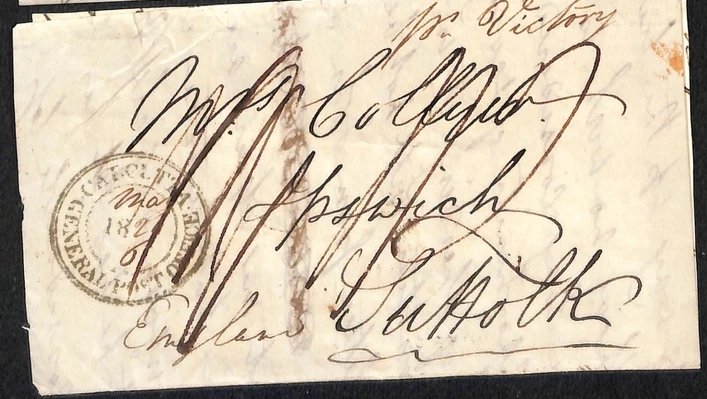 pr. Victory
Mrs. Collyer
Ipswich
Suffolk
England
CALCUTTA
GENERAL POST OFFICE
182